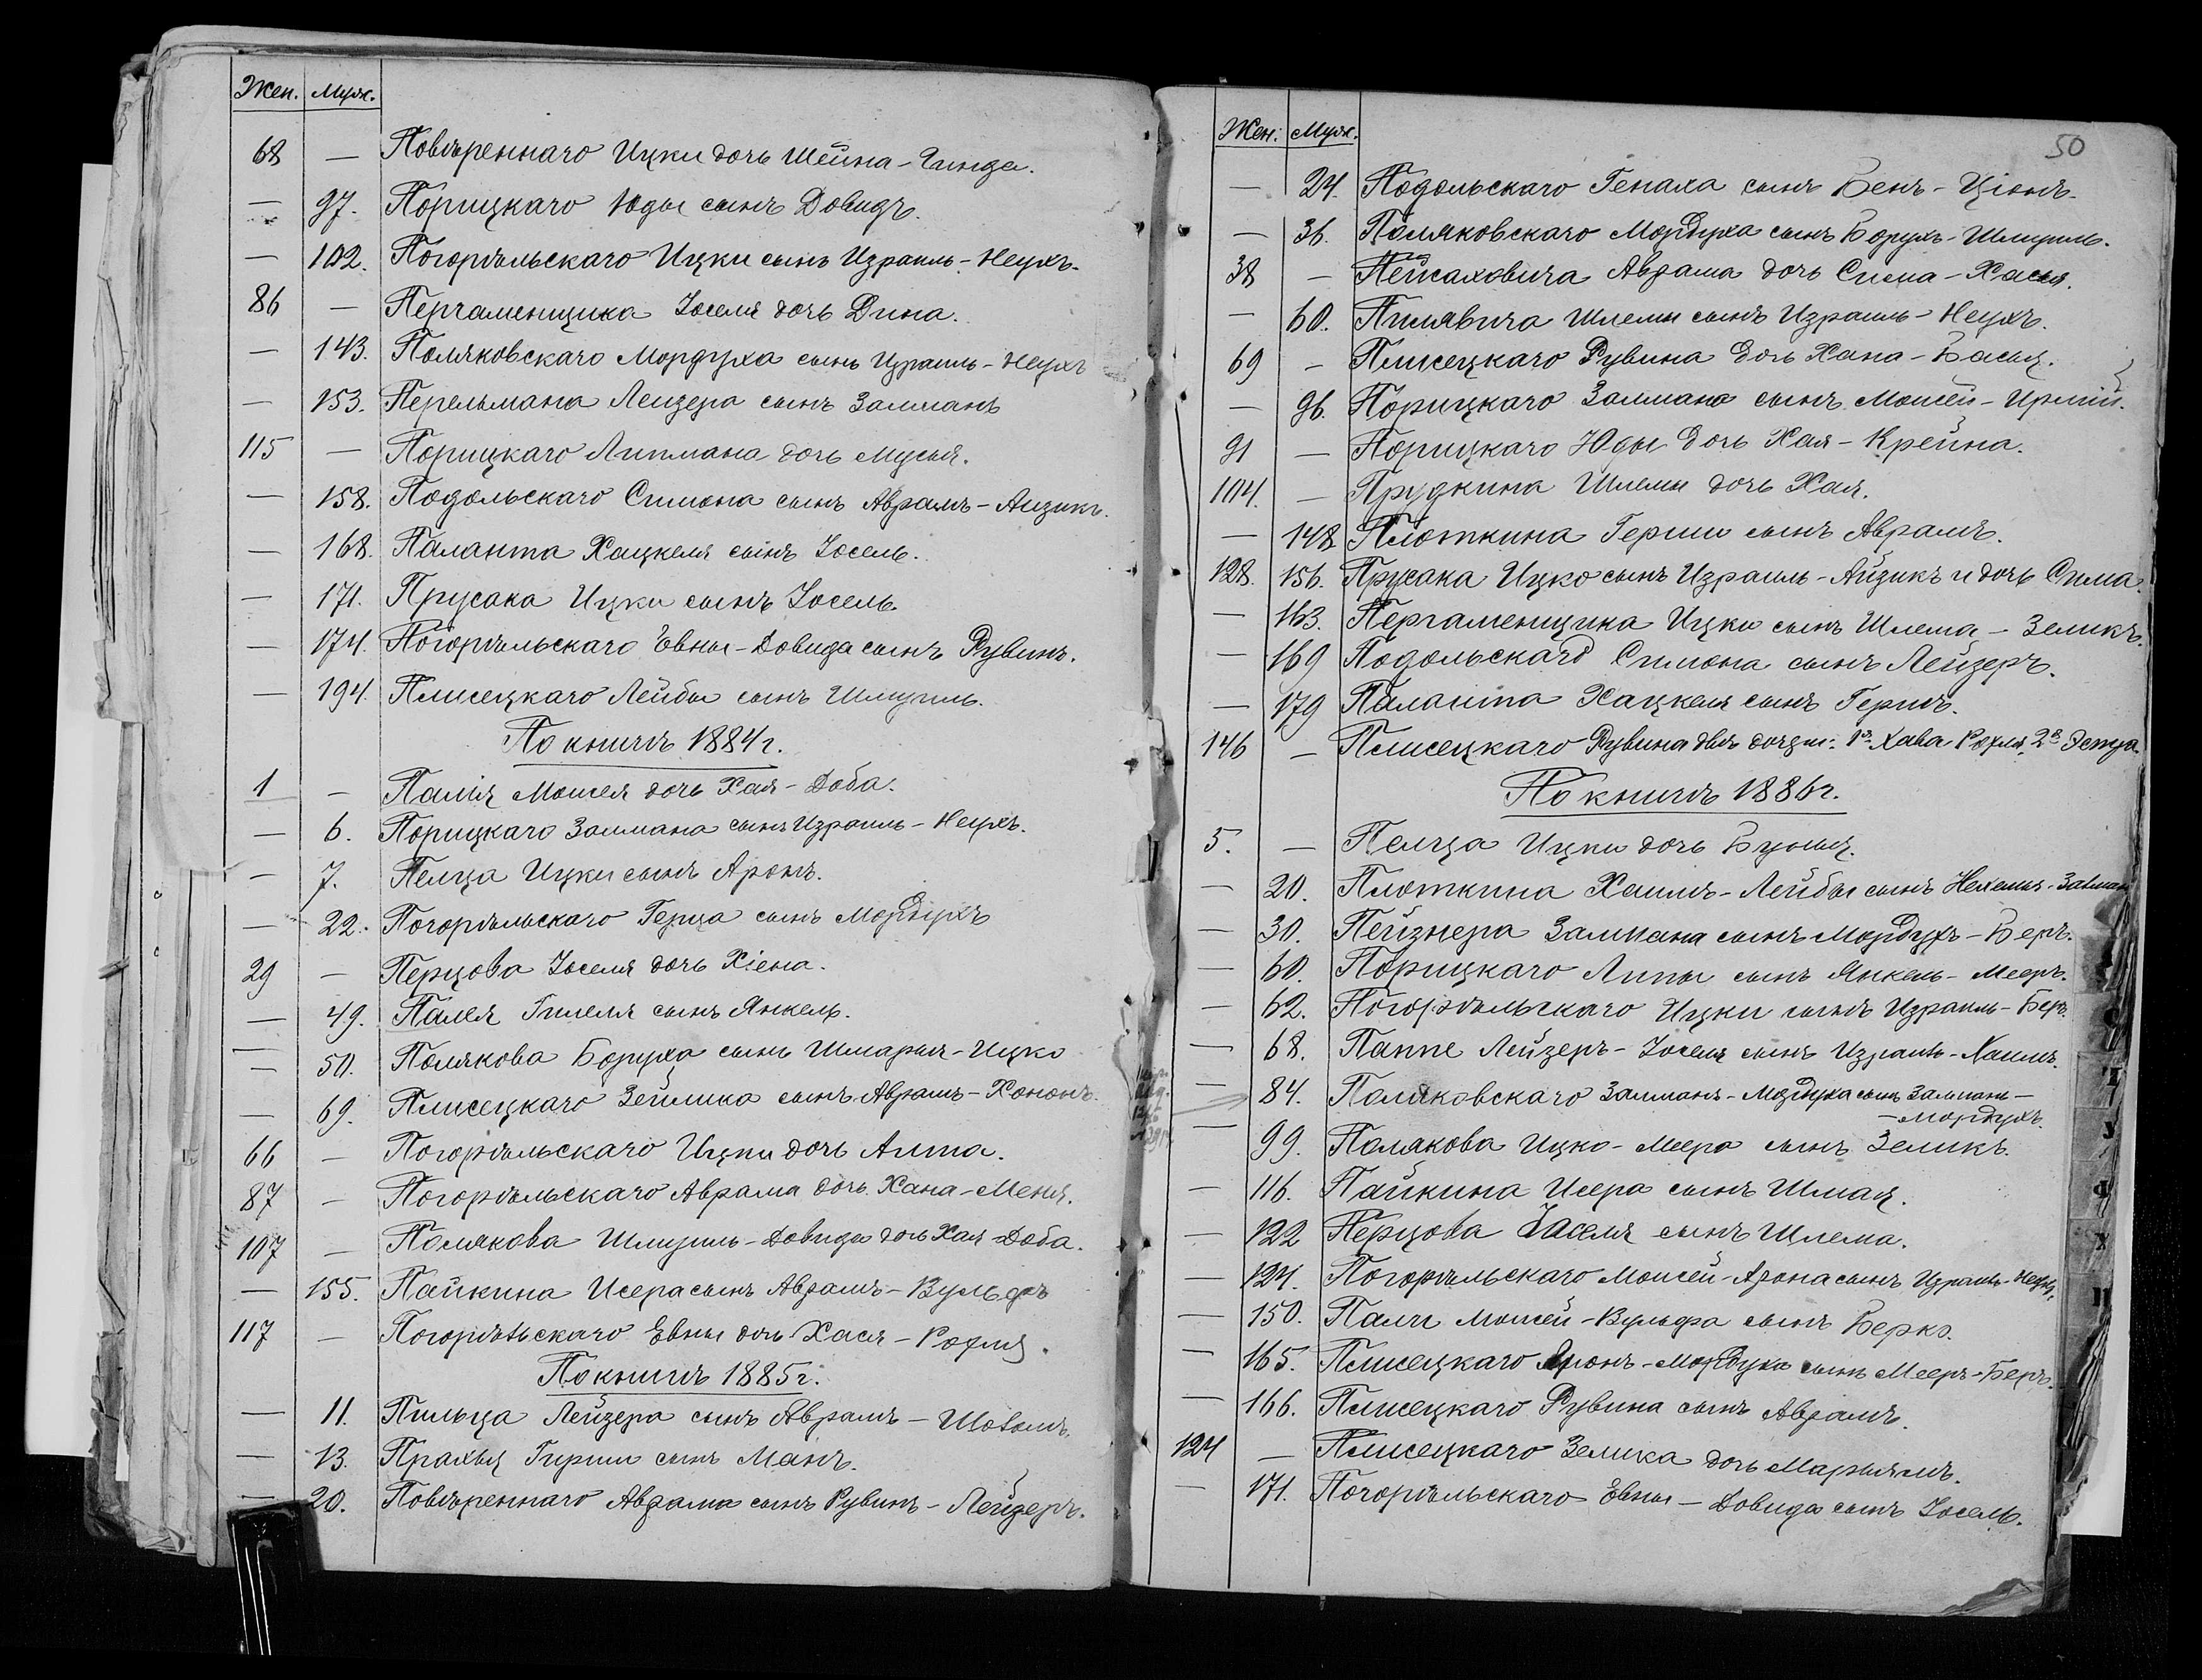 Жен. Муж.
68 — Повѣреннаго Ицки дочь Шейна-Гинда.
— 97. Порицкаго Юды сынъ Довидъ.
— 102. Погорѣльскаго Ицки сынъ Израиль-Неухъ.
86 — Пергаменщика Іоселя дочь Дина.
— 143. Поляковскаго Мордуха сынъ Израиль-Неухъ
— 153. Перельмана Лейзера сынъ Залманъ
115 — Порицкаго Липмана дочь Мусья.
— 158. Подольскаго Симона сынъ Аврамъ-Аизикъ.
— 168. Паланта Хацкеля сынъ Іосель.
— 171. Прусака Ицки сынъ Іосель.
— 174. Погорѣльскаго Евны-Довида сынъ Рувинъ.
— 194. Плисецкаго Лейбы сынъ Шмуиль.
По книгѣ 1884 г.
1 — Палія Моисея дочь Хая-Доба.
— 6. Порицкаго Залмана сынъ Израиль-Неухъ.
— 7. Пелца Ицки сынъ Аронъ.
— 22. Погорѣльскаго Герца сынъ Мордухъ
29 — Перцова Іоселя дочь Хіена.
— 49. Палея Гилеля сынъ Янкель.
— 50. Полякова Боруха сынъ Шмарья-Ицко
— 69. Плисецкаго Зейлика сынъ Аврамъ-Хононъ.
66 — Погорѣльскаго Ицки дочь Алта.
87 — Погорѣльскаго Аврама дочь Хана-Меня.
107 — Полякова Шмуиль-Довида дочь Хая-Доба.
— 155. Пайкина Исера сынъ Аврамъ-Вульфъ
117 — Погорѣльскаго Евны дочь Хася-Рохля.
По книгѣ 1885 г.
— 11. Пильца Лейзера сынъ Аврамъ-Шоломъ.
— 13. Прахья Гирши сынъ Манъ.
— 20. Повѣреннаго Аврама сынъ Рувинъ-Лейзеръ.
50
Жен. Муж.
— 24. Подольскаго Генаха сынъ Бенъ-Ціонъ.
— 36. Поляковскаго Мордуха сынъ Борухъ-Шмуиль.
38 — Пейсаховича Аврама дочь Сима-Хася.
— 60. Пилявича Шлемы сынъ Израиль-Неухъ.
69 — Плисецкаго Рувина дочь Хана-Бася.
— 96. Порицкаго Залмана сынъ Моисей-Ирмій.
91 — Порицкаго Юды дочь Хая-Крейна.
104. — Прудкина Шлемы дочь Хая.
— 148 Плоткина Герши сынъ Аврамъ.
128. 156. Прусака Ицко сынъ Израиль-Айзикъ и дочь Сима.
— 163. Пергаменщика Ицки сынъ Шлема-Зеликъ.
— 169 Подольскаго Симона сынъ Лейзеръ.
— 179 Паланта Хацкеля сынъ Гершъ.
146 — Плисецкаго Рувина двѣ дочери: 1я Хава Рохля, 2я Эстра.
По книгѣ 1886 г.
5. — Пелца Ицки дочь Буня.
— 20. Плоткина Хаимъ-Лейбы сынъ Нехемья-Залман
— 30. Пейзнера Залмана сынъ Мордухъ-Беръ.
— 60. Порицкаго Липы сынъ Янкель-Мееръ.
— 62. Погорѣльскаго Ицки сынъ Израиль-Беръ.
— 68. Паппе Лейзеръ-Іоселя сынъ Израиль-Хаимъ.
— 84. Поляковскаго Залманъ-Мордуха сынъ Залманъ-
-Мордухъ.
— 99. Полякова Ицко-Меера сынъ Зеликъ.
— 116. Пайкина Исера сынъ Шмая.
— 122 Перцова Іоселя сынъ Шлема.
— 124. Погорѣльскаго Моисей-Арона сынъ Израиль-Неухъ.
— 150. Палѣ Моисей-Вульфа сынъ Берко.
— 165. Плисецкаго Аронъ-Мордуха сынъ Мееръ-Беръ.
— 166. Плисецкаго Рувина сынъ Аврамъ.
124 — Плисецкаго Зелика дочь Марьямъ.
— 171. Погорѣльскаго Евны-Довида сынъ Іосель.